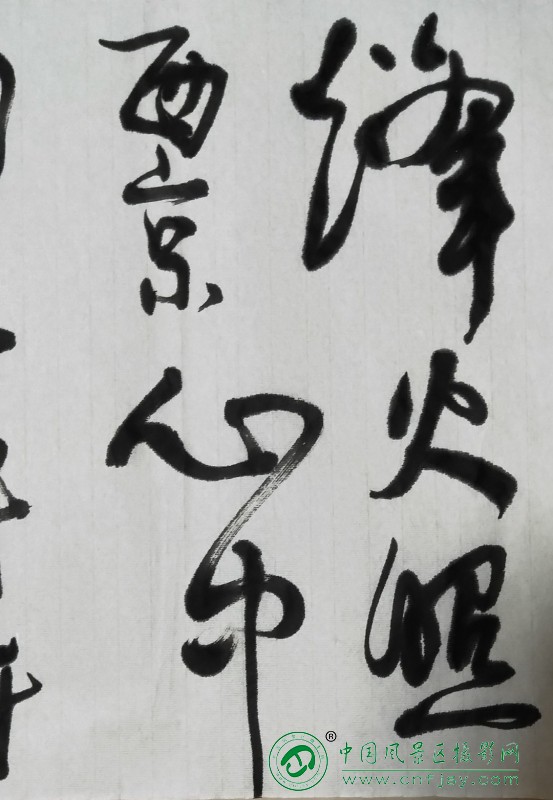 烽火照
西京心中
®中国风景区摄影网
www.cnfjqy.com